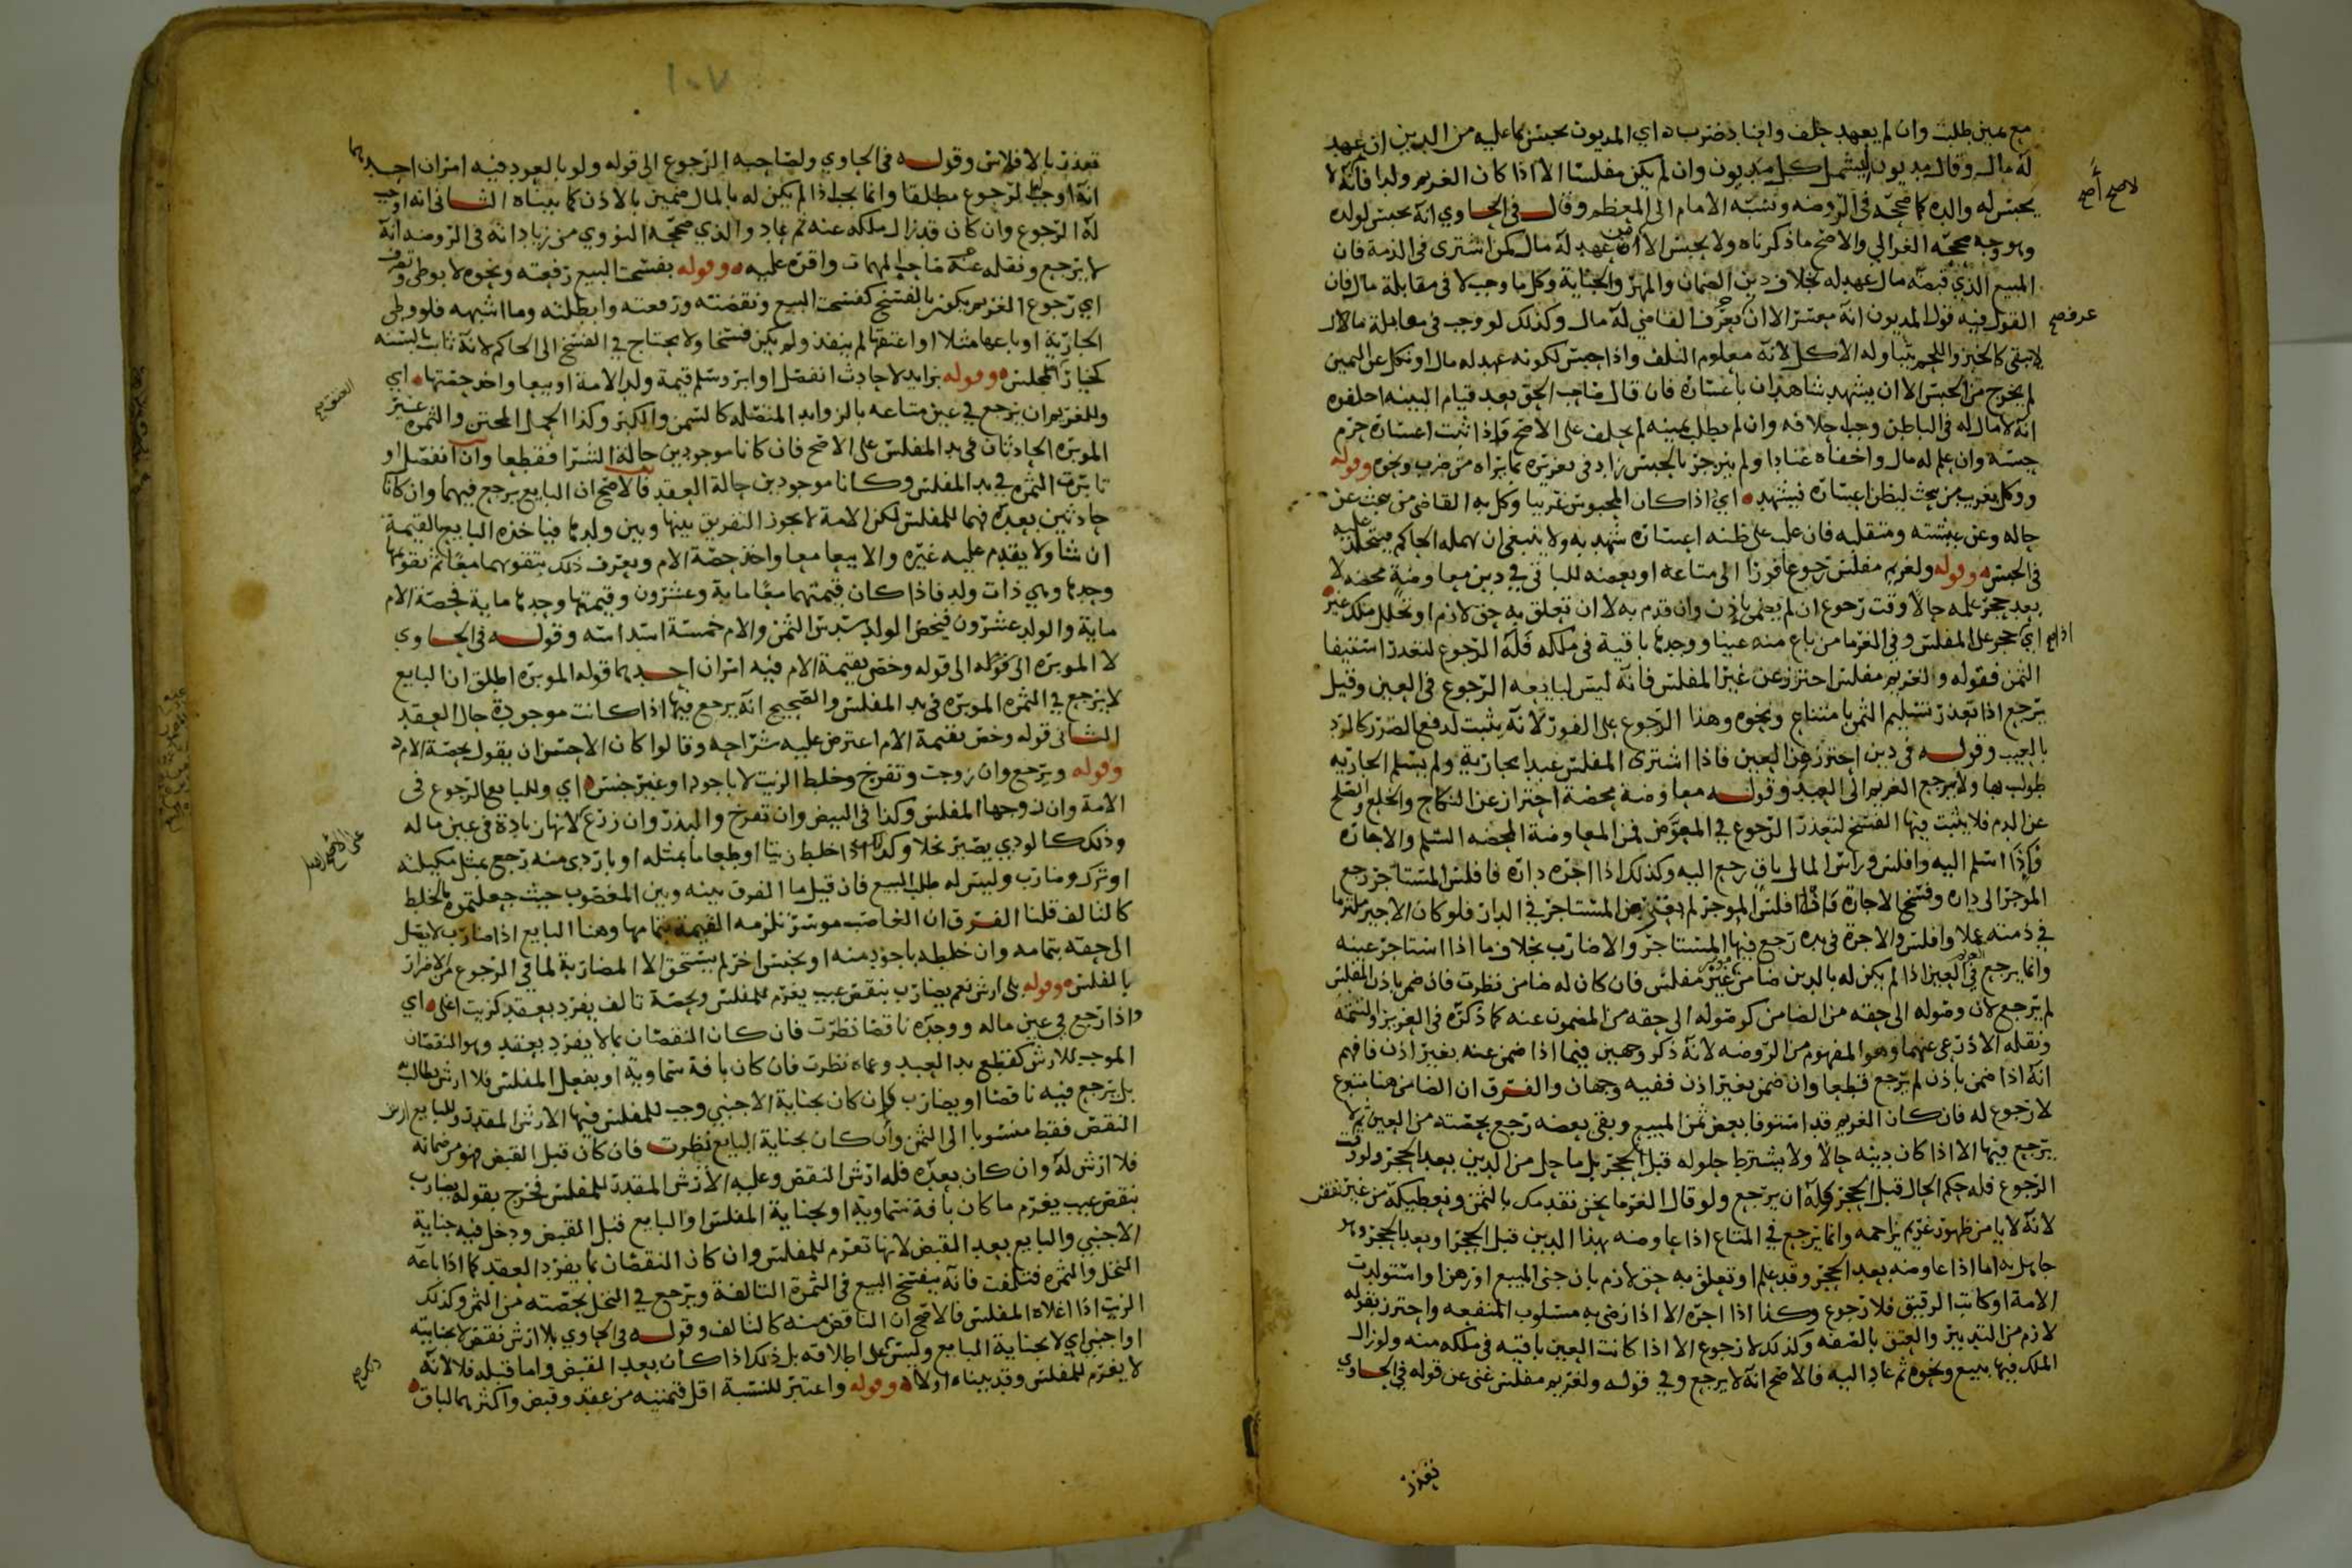 مع يمين طلبت وان لم يعهد حلف واينا دضرب ه اي المديون يحبس بما عليه من الدين ان عهد
له مال وقال مديون ليشمل كل مديون وان لم يكن مفلسا الا اذا كان الغريم ولدا فانه لا
يحبس له والده كما صححه في الروضه ونسبه الامام الى المعظم وقال في الحاوي انه يحبس لولده
وهو وجه صححه الغزالي والاصح ما ذكرناه ولا يحبس الا من عهد له مال كمن اشترى في الذمة فان
المبيع الذي قبضه مال عهد له بخلاف دين الضمان والمهر والجناية وكل ما وجب لا في مقابلة مال فان
القول فيه قول المديون انه معسر الا ان يعرف القاضي له مال وكذلك لو وجب في مقابلة مال لا
لا يبقى كالخبز واللحم يتناوله الاكل لانه معلوم التلف واذا حبس لكونه عهد له مال او نكل عن اليمين
لم يخرج من الحبس الا ان يشهد شاهدان باعساره فان قال صاحب الحق بعد قيام البينه احلفوه
انه لا مال له في الباطن وجب حلافه وان لم يطلب يمينه لم يحلف على الاصح فاذا ثبت اعساره حرم
حبسه وان علم له مال واخفاه عنادا ولم ينزجر بالحبس زاد في تعزيره بما يراه من ضرب ونحوه وقوله
ووكل بغريب من بحث ليظن اعساره فيشهد ه اي اذا كان المحبوس غريبا وكل به القاضي من يبحث عن
حاله وعن بيئته ومنقلبه فان غلب على ظنه اعساره شهد به ولا ينبغي ان يهمله الحاكم فيتخلد عليه
في الحبس ه وقوله ولغريم مفلس رجوع فورا الى متاعه او بعضه للباقي في دين معاوضة محضه لا
بعد حجر علمه حالا وقت رجوع ان لم يضمن باذن وان قدم به لا ان تعلق به حق لازم او تخلل ملك غير
اي حجر على المفلس وفي الغرما من باع منه عينا ووجدها باقية في ملكه فله الرجوع لتعذر استيفا
الثمن فقوله ولغريم مفلس احترز عن غير المفلس فانه ليس لبايعه الرجوع في العين وقيل
يرجع اذا تعذر تسليم الثمن بامتناع ونحوه وهذا الرجوع على الفور لانه يثبت لدفع الضرر كالرد
بالعيب وقوله في دين احترز من العين فاذا اشترى المفلس عبدا بجارية ولم يسلم الجاريه
طولب بها ولا يرجع الغريم الى العبد وقوله معاوضة محضة احتراز عن النكاح والخلع والصلح
عن الدم فلا يثبت فيها الفسخ لتعذر الرجوع في المعوض فمن المعاوضة المحضه السلم والاجاره
فاذا اسلم اليه وافلس وراس المال باق رجع اليه وكذلك اذا اجره داره فافلس المستاجر رجع
الموجر الى داره وفسخ الاجارة فاذا افلس الموجر لم يعتبر من المستاجر في الدار فلو كان الاجير ملتزما
في ذمته عملا وافلس والاجرة في يده رجع فيها المستاجر والا ضارب بخلاف ما اذا استاجر عينه
وانما يرجع في العين اذا لم يكن له بالدين ضامن غير مفلس فان كان له ضامن نظرت فان ضمن باذن المفلس
لم يرجع لان وصوله الى حقه من الضامن كوصوله الى حقه من المضمون عنه كما ذكره في العزيز والتتمه
ونقله الاذرعي عنهما وهو المفهوم من الروضه لانه ذكر وجهين فيما اذا ضمن عنه بغير اذن فافهم
انه اذا ضمن باذن لم يرجع قطعا وان ضمن بغير اذن ففيه وجهان والفرق ان الضامن هنا متبرع
لا رجوع له فان كان الغريم قد استوفا بعض ثمن المبيع وبقى بعضه رجع بحصته من العين ثم لا
يرجع فيها الا اذا كان دينه حالا ولا يشترط حلوله قبل الحجر بل ما حل من الدين بعد الحجر ولو وقت
الرجوع فله حكم الحال قبل الحجر فله ان يرجع ولو قال الغرما نحن نقدمك بالثمن ونعطيكه من غير نقض
لانه لا يامن ظهور غريم يزاحمه وانما يرجع في المتاع اذا عاوضه بهذا الدين قبل الحجر او بعد الحجر وهو
جاهل به اما اذا عاوضه بعد الحجر وقد علم او تعلق به حق لازم بان جنى المبيع او رهن او استولدت
الامة او كاتب الرقيق فلا رجوع وكذا اذا اجره الا اذا رضي به مسلوب المنفعه واحترز بقوله
لازم من التدبير والعتق بالصفه وكذلك لا رجوع الا اذا كانت العين باقيه في ملكه منه ولو زال
الملك فيها ببيع ونحوه ثم عاد اليه فالاصح انه لا يرجع وفي قوله ولغريم مفلس غنى عن قوله في الحاوي
تعذر
١٠٧
تعذر بالافلاس وقوله في الحاوي ولصاحبه الرجوع الى قوله ولو بالعود فيه امران احدهما
انه اوجب الرجوع مطلقا وانما يجب اذا لم يكن له بالمال ضمين بالاذن كما بيناه الثاني انه اوجب
له الرجوع وان كان قد زال ملكه عنه ثم عاد والذي صححه النووي من زياداته في الروضه انه
لا يرجع ونقله عنه صاحب المهمات واقره عليه ه وقوله بفسخت البيع رفعته ونحوه لا بوطي وتصرف
اي رجوع الغريم يكون بالفسخ كفسخت البيع ونقضته ورفعته وابطلته وما اشبهه فلو وطي
الجارية او باعها مثلا او اعتقها لم ينفذ ولم يكن فسخا ولا يحتاج في الفسخ الى الحاكم لانه ثابت بالسنه
كخيار المجلس ه وقوله بزايد لا حادث انفصل او ابر وسلم قيمة ولد الامة او بيعا واخذ حصتها ه اي
وللغريم ان يرجع في عين متاعه بالزوايد المتصله كالسمن والكبر وكذا الحمل المجتن والثمره غير
الموبره الحادثان في يد المفلس على الاصح فان كانا موجودين حالة الشرا فقطعا وان انفصل او
تابرت الثمره في يد المفلس وكانا موجودين حالة العقد فالاصح ان البايع يرجع فيهما وان كانا
حادثين بعده فهما للمفلس لكن الامة لا يجوز التفريق بينها وبين ولدها فياخذه البايع بالقيمة
ان شا ولا يقدم عليه غيره والا بيعا معا واخذ حصة الام ويعرف ذلك بتقويمهما معا ثم تقويمها
وحدها وهي ذات ولد فاذا كان قيمتهما معا ماية وعشرون وقيمتها وحدها ماية فحصة الام
ماية والولد عشرون فيخص الولد سدس الثمن والام خمسة اسداسه وقوله في الحاوي
لا الموبره الى قوله وخص بقيمة الام فيه امران احدهما قوله الموبره اطلق ان البايع
لا يرجع في الثمره الموبره في يد المفلس والصحيح انه يرجع فيها اذا كانت موجودة حال العقد
الثاني قوله وخص بقيمة الام اعترض عليه شراحه وقالوا كان الاحسن ان يقول بحصة الام ه
وقوله ويرجع وان زوجت وتفرخ وخلط الزيت لا باجود او غير جنس ه اي وللبايع الرجوع في
الامة وان زوجها المفلس وكذا في البيض وان تفرخ والبذر وان زرع لانها زيادة في عين ماله
وذلك كالودي يصير نخلا وكذلك اذا خلط زيتا او طعاما بمثله او باردى منه رجع بمثل مكيلته
او ترك وضارب وليس له طلب البيع فان قيل ما الفرق بينه وبين المغصوب حيث جعلتموه بالخلط
كالتالف قلنا الفرق ان الغاصب موسر تلزمه القيمة بتمامها وهنا البايع اذا ضارب لا يصل
الى حقه بتمامه وان خلطه باجود منه او بجنس اخر لم يستحق الا المضاربة لما في الرجوع من الاضرار
بالمفلس ه وقوله بلا ارش نعم يضارب بنقص عيب يغرم للمفلس وبحصة تالف يفرد بعقد كزيت اغلى ه اي
واذا رجع في عين ماله ووجده ناقصا نظرت فان كان النقصان بما لا يفرد بعقد وهو النقصان
الموجب للارش كقطع يد العبد وعماه نظرت فان كان بافة سماوية او بفعل المفلس فلا ارش يطالب به
بل يرجع فيه ناقصا او يضارب وان كان بجناية الاجنبي وجب للمفلس فيها الارش المقدر وللبايع ارش
النقص فقط منسوبا الى الثمن وان كان بجناية البايع نظرت فان كان قبل القبض فهو من ضمانه
فلا ارش له وان كان بعده فله ارش النقص وعليه الارش المقدر للمفلس فخرج بقوله يضارب
بنقص عيب يغرم ما كان بافة سماوية او بجناية المفلس او البايع قبل القبض ودخل فيه جناية
الاجنبي والبايع بعد القبض لانها تغرم للمفلس وان كان النقصان بما يفرد العقد كما اذا باعه
النخل والثمره فتلفت فانه ينفسخ البيع في الثمرة التالفة ويرجع في النخل بحصته من الثمن وكذلك
الزيت اذا اغلاه المفلس فالاصح ان الناقص منه كالتالف وقوله في الحاوي بلا ارش نقص لا بجنايته
او اجنبي اي لا بجناية البايع وليس على اطلاقه بل ذلك اذا كان بعد القبض واما قبله فلا لانه
لا يغرم للمفلس وقد بيناه اولا ه وقوله واعتبر للنسبة اقل قيمتيه من عقد وقبض واكثرهما لباق ه